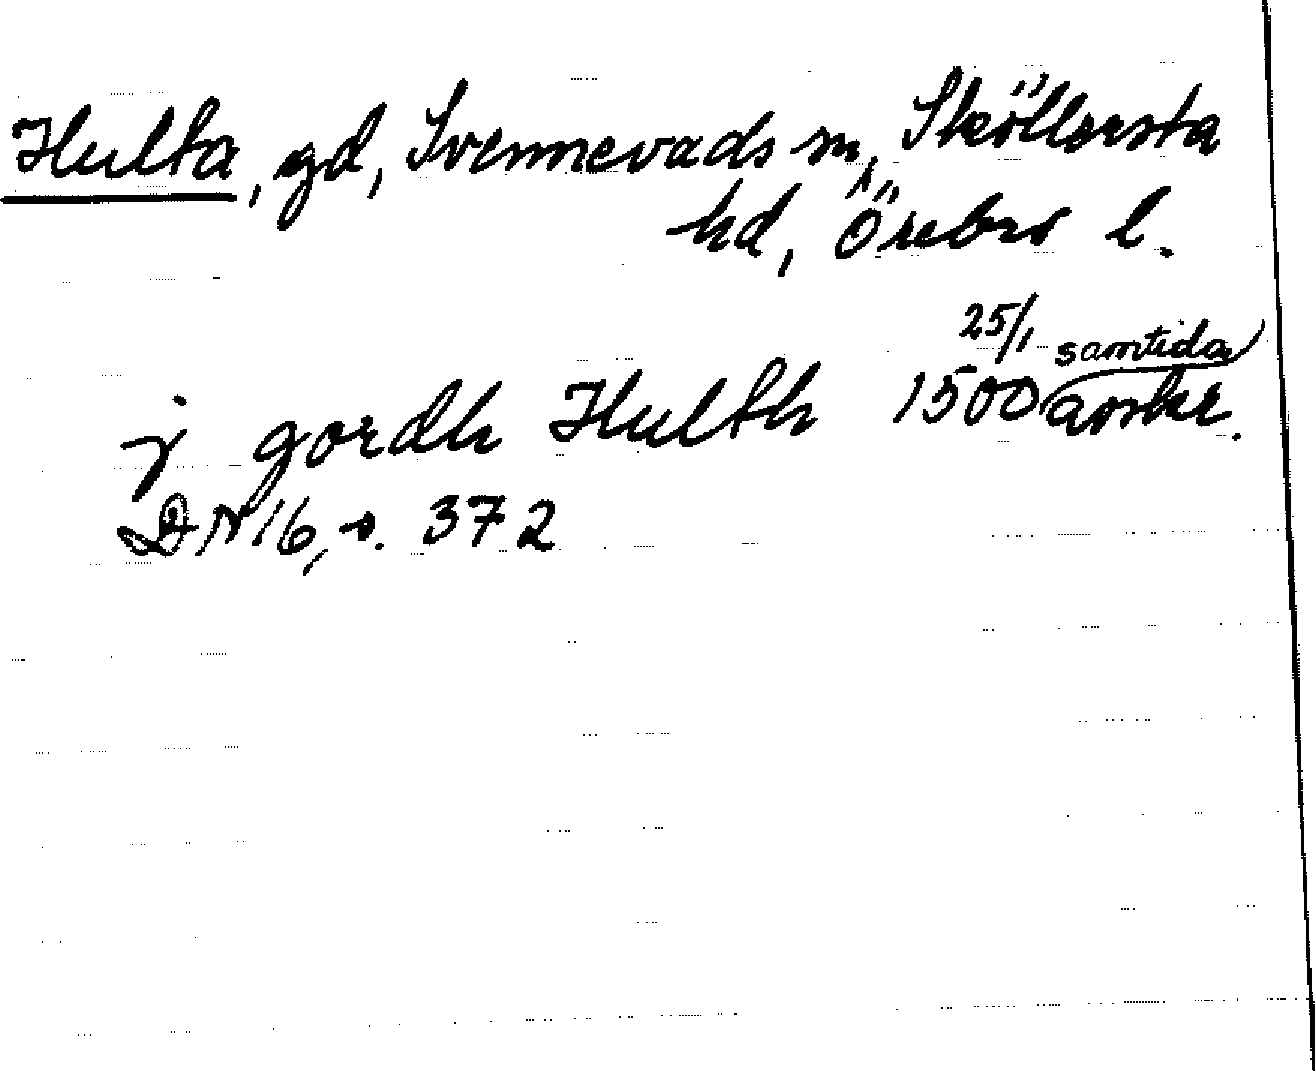 Hulta, gd, Svennevads sn, Sköllersta
hd, Örebro l.
j gordh Hulth 25/1 1500 samtida avskr.
DN 16, s. 372